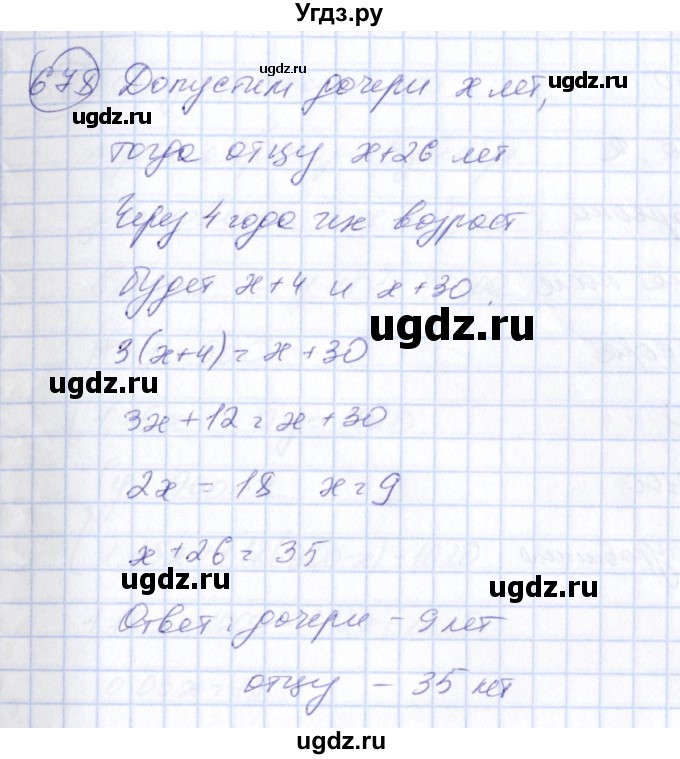 Угдз.ру
ugdz.ru
678 Допустим дочери x лет,
ugdz.ru
тогда отцу x+26 лет
Через 4 года их возраст
будет x+4 и x+30.
ugdz.ru
3(x+4)=x+30
ugdz.ru
3x+12=x+30
2x = 18 x=9
x+26=35
ugdz.ru
ugdz.ru
Ответ: дочери – 9 лет
отцу – 35 лет
ugdz.ru